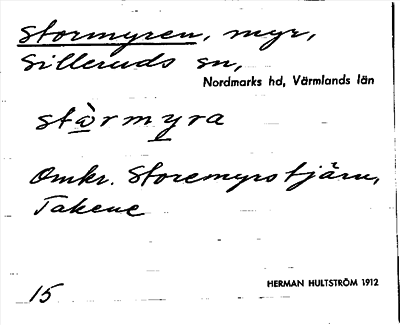 Stormyren, myr,
Silleruds sn,
Nordmarks hd, Värmlands län
stòrmyra
Omkr. Storemyrstjärn,
Takene
15
HERMAN HULTSTRÖM 1912